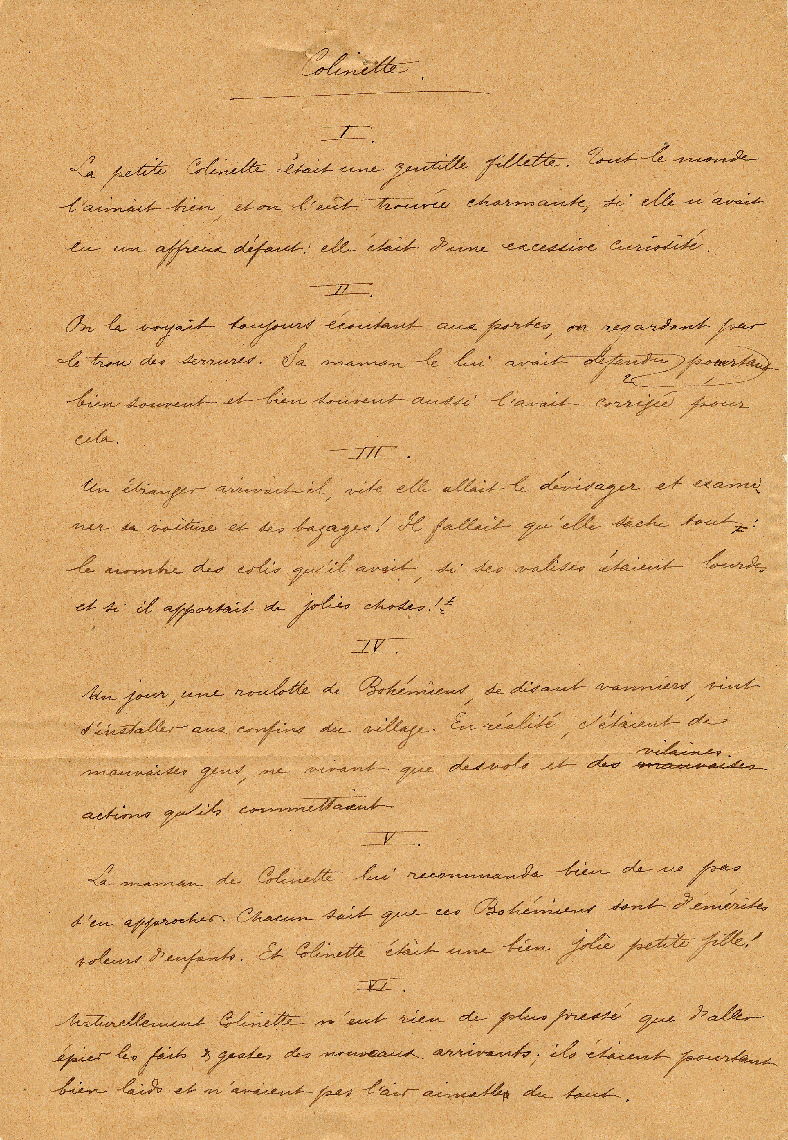 Colinette.
I.
La petite Colinette était une gentille fillette. Tout le monde
l'aimait bien, et on l'eût trouvée charmante, si elle n'avait
eu un affreux défaut: elle était d'une excessive curiosité.
II.
On la voyait toujours écoutant aux portes, ou regardant par
le trou des serrures. Sa maman le lui avait défendu pourtant
bien souvent et bien souvent aussi l'avait corrigée pour
cela.
III.
Un étranger arrivait-il, vite elle allait le dévisager et exami
ner sa voiture et ses bagages! Il fallait qu'elle sache tout:
le nombre des colis qu'il avait, si ses valises étaient lourdes
et si il apportait de jolies choses!
IV.
Un jour, une roulotte de Bohémiens, se disant vanniers, vint
s'installer aux confins du village. En réalité, c'étaient de
mauvaises gens, ne vivant que des vols et des vilaines mauvaises
actions qu'ils commettaient
V
La maman de Colinette lui recommanda bien de ne pas
s'en approcher. Chacun sait que ces Bohémiens sont d'émérites
voleurs d'enfants. Et Colinette était une bien jolie petite fille!
VI.
Naturellement Colinette n'eut rien de plus pressé que d'aller
épier les faits & gestes des nouveaux arrivants; ils étaient pourtant
bien laids et n'avaient pas l'air aimables du tout.